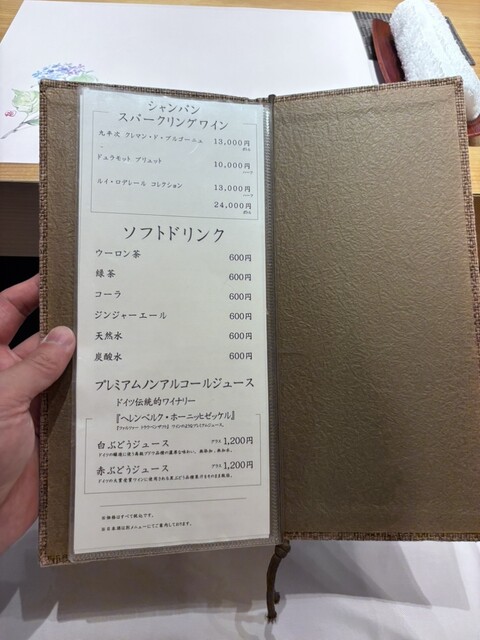 シャンパン
スパークリングワイン
九平次 クレマン・ド・ブルゴーニュ 13,000円
デュラモット ブリュット 10,000円
ルイ・ロデレール コレクション 13,000円
24,000円
ソフトドリンク
ウーロン茶 600円
緑茶 600円
コーラ 600円
ジンジャーエール 600円
天然水 600円
炭酸水 600円
プレミアムノンアルコールジュース
ドイツ伝統的ワイナリー
『ヘレンベルク・ホーニッヒゼッケル』
白ぶどうジュース グラス 1,200円
赤ぶどうジュース グラス 1,200円
※価格はすべて税込です。
※日本酒は別メニューにてご案内しております。